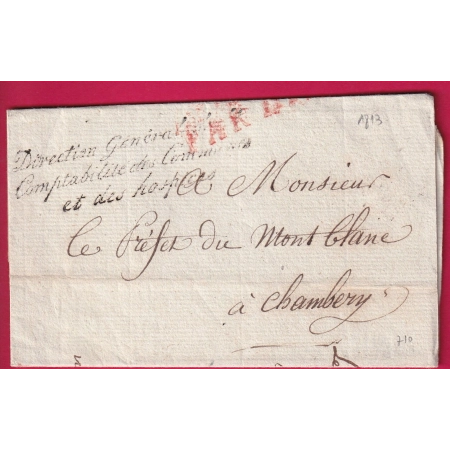 1813
Direction Générale de la
Comptabilité des Communes
et des hospices
A Monsieur
Le Préfet du Mont blanc
à Chambery
710